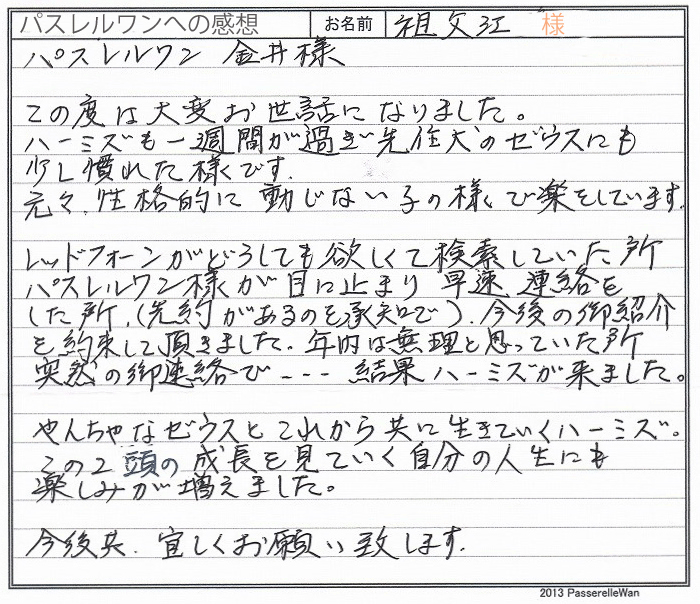 パスレルワンへの感想 お名前 祖父江 様
パスレルワン 金井様
この度は大変お世話になりました。
ハーミズも一週間が過ぎ先住犬のゼウスにも
少し慣れた様です.
元々、性格的に動じない子の様で楽をしています.
レッドフォーンがどうしても欲しくて検索していた所
パスレルワン様が目に止まり 早速 連絡を
した所、(先約があるのを承知で)、今後の御紹介
を約束して頂きました. 年内は無理と思っていた所
突然の御連絡で --- 結果ハーミズが来ました。
やんちゃなゼウスとこれから共に生きていくハーミズ。
この2頭の成長を見ていく自分の人生にも
楽しみが増えました。
今後共、宜しくお願い致します.
2013 PasserelleWan